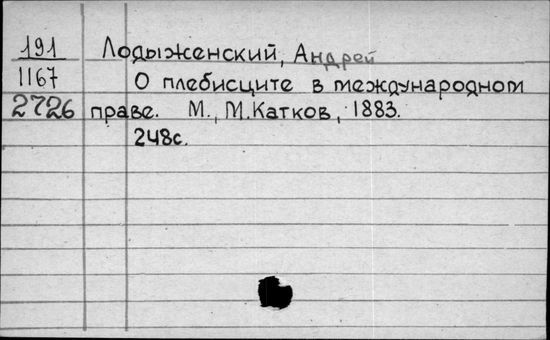 191 Лодыженский, Андрей
1167 О плебисците в международном
2726 праве. М., М.Катков, 1883.
248с.